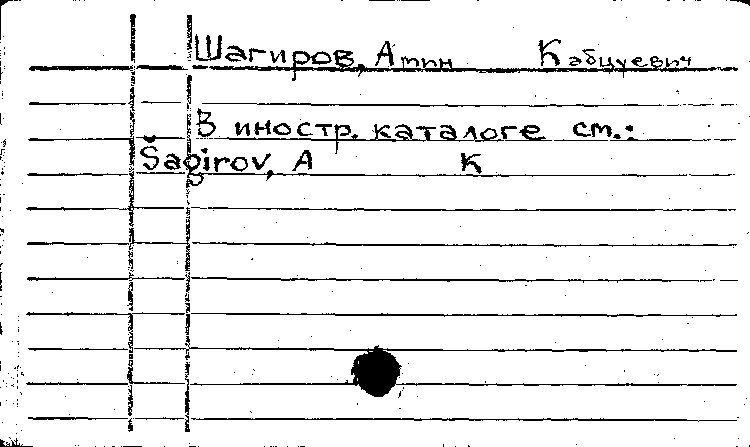 Шагиров, Амин Кабцуевич
В иностр. каталоге см.:
Šagirov, A K